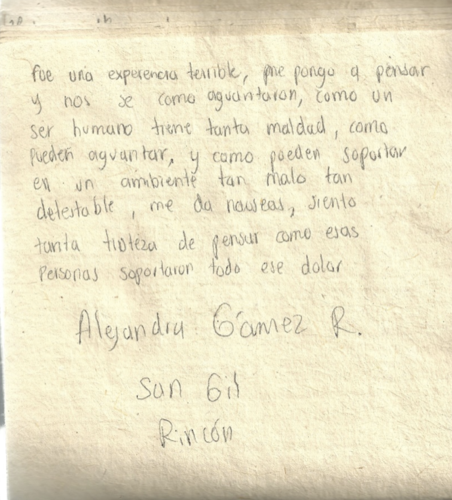 fue una experencia terrible, me pongo a pensar
y nos se como aguantaron, como un
ser humano tiene tanta maldad, como
pueden aguantar, y como pueden soportar
en un ambiente tan malo tan
detestable, me da nauseas, siento
tanta tristeza de pensar como esas
personas soportaron todo ese dolor
Alejandra Gámez R.
San Gil
Rincón